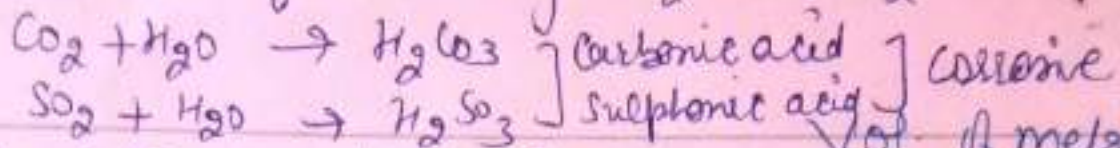 CO2 + H2O → H2CO3 ] Carbonic acid ] corrosive
SO2 + H2O → H2SO3 ] sulphonic acid ] of